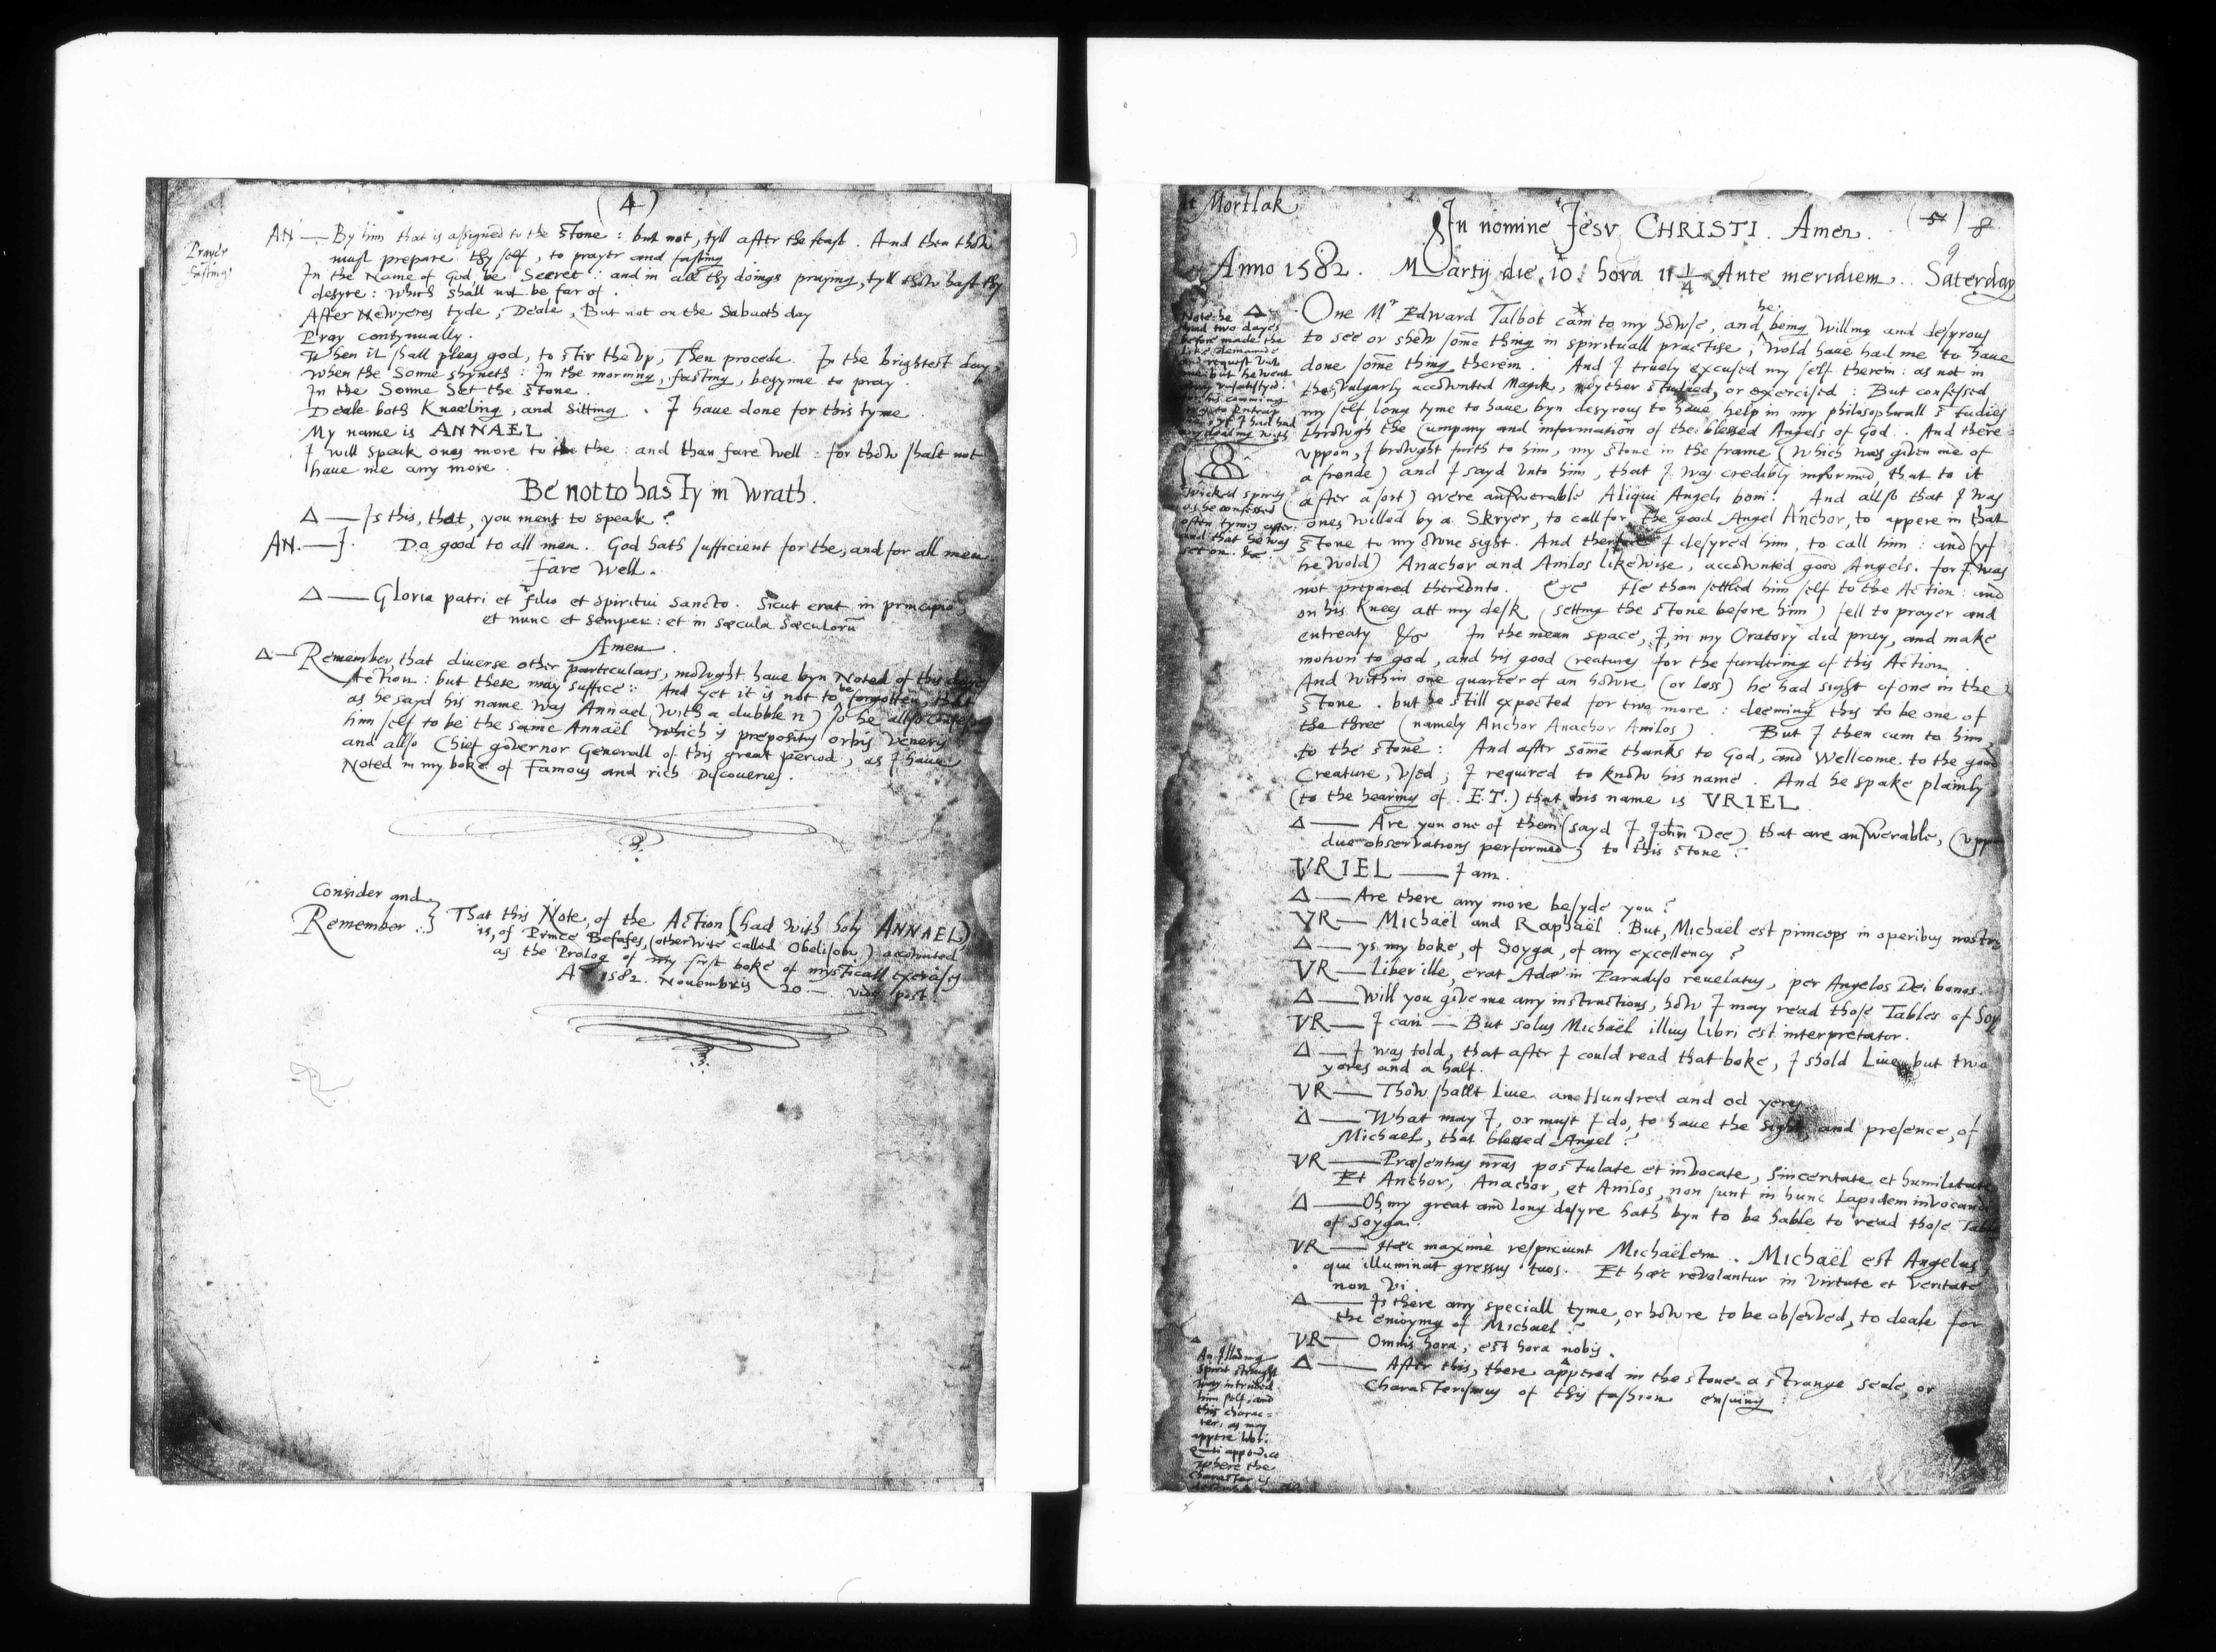 (4)
Prayer
Fasting
AN — By him that is assigned to the stone : but not, tyll after the feast . And then thow
must prepare thy self , to prayer and fasting
In the Name of God, be Secret : and in all thy doings praying, tyll thow hast thy
desyre : which shall not be far of .
After Newyeres tyde , Deale , But not on the Sabaoth day
Pray contynually .
When it shall pleas god, to stir the up, Then procede . In the brightest day
When the Sonne shyneth : In the morning, fasting , begynne to pray .
In the Sonne Set the stone .
Deale both Kneeling, and Sitting . I have done for this tyme
My name is ANNAEL
I will speak ones more to the : and than fare well : for thow shalt not
have me any more .
Be not to hasty in Wrath .
Δ — Is this, that, you ment to speak ?
AN. — ]. Do good to all men . God hath sufficient for the, and for all men
Fare Well .
Δ — Gloria patri et filio et spiritui sancto . Sicut erat in principio
et nunc et semper : et in sæcula sæculorū
Amen .
Δ — Remember, that diuerse other particulars, mowght have byn Noted of this dayes
Action : but these may suffice : And yet it is not to be forgotten, that
as he sayd his name was Annael (with a dubble n) so he allso confessed
him self to be the same Annaël which is prepositus orbis Veneris
and allso Chief governor Generall of this great period , as I have
Noted in my boke of Famous and rich Discoueries .
Consider and
Remember :
That this Note, of the Action (had with holy ANNAEL)
is, of Prince Befafes, (otherwise called Obelison) accownted
as the Prolog of my first boke of mysticall exercises
A° 1582. Nouembris 20 — Vide post
At Mortlak
In nomine Jesv CHRISTI . Amen . (5) 8
9
Anno 1582 . Martij die .10. hora 11 1/4 Ante meridiem . Saterday
Note: he
had two dayes
before made the
like demaunde
and request vnto
me: but he went
away unsatisfyed.
for his comming
was to entrap
me, yf I had had
any dealing with
Wicked spirits
as he confessed
often tymes after:
and that he was
set on . &c
Δ . One Mr Edward Talbot cam to my howse, and he being willing and desyrous
to see or shew some thing in spirituall practise , wold have had me to haue
done some thing therein . And I truely excused my self therein : as not in
the, vulgarly accownted Magik, neyther studied, or exercised : But confessed
my self long tyme to haue byn desyrous to haue help in my philosophicall studies
through the Cumpany and information of the blessed Angels of God . And there
vppon, I browght furth to him , my stone in the frame ( which was given me of
a frende ) and I sayd vnto him , that I was credibly informed, that to it
( after a sort ) were answerable Aliqui Angeli boni : And allso that I was
ones willed by a Skryer , to call for the good Angel Anchor, to appere in that
stone to my owne sight . And therfore I desyred him , to call him : and (yf
he wold) Anachor and Anilos likewise, accownted good Angels . for I was
not prepared therevnto . &c He than settled him self to the Action : and
on his Knees att my desk (setting the stone before him) fell to prayer and
entreaty &c In the mean space, I, in my Oratory did pray, and make
motion to god , and his good Creatures for the furdering of this Action .
And within one quarter of an howre (or less) he had sight of one in the
stone . but he still expected for two more : deeming this to be one of
the three (namely Anchor Anachor Anilos) . But I then cam to him
to the stone : And after some thanks to God, and Wellcome to the good
Creature, vsed ; I required to know his name . And he spake plainly
(to the hearing of . E.T.) that his name is VRIEL .
Δ — Are you one of them (sayd I, John Dee) that are answerable, (vppon
due observations performed) to this stone ?
VRIEL — I am .
Δ — Are there any more besyde you ?
VR — Michaël and Raphaël . But, Michaël est princeps in operibus nostris
Δ — ys my boke, of Soyga , of any excellency ?
VR — Liber ille, erat Adæ in Paradiso reuelatus, per Angelos Dei bonos .
Δ — Will you give me any instructions, how I may read those Tables of Soyga
VR — I can — But solus Michaël illius libri est interpretator .
Δ — I was told, that after I could read that boke , I shold Liue but two
yeres and a half .
VR — Thow shallt Liue an Hundred and od yeres
Δ — What may I, or must I do, to haue the sight, and presence, of
Michael, that blessed Angel ?
VR — Præsentias nras postulate et invocate, Sinceritate et humilitate
Et Anchor, Anachor, et Anilos, non sunt in hunc Lapidem invocandi
Δ — Oh, my great and long desyre hath byn to be hable to read those Tables
of Soyga .
VR — Hæc maximè respiciunt Michaëlem . Michaël est Angelus
qui illuminat gressus tuos . Et hæc revelantur in virtute et veritate
non vi .
Δ — Is there any speciall tyme, or howre to be observed, to deale for
the enioying of Michael ?
VR — Omnis hora, est hora nobis .
Δ — After this, there appered in the stone a strange seale, or
Characterismus of this fashion ensuing :
An illuding
spirit straight
way intruded
him self, and
this charac=
ter: as may
appere libri
Quinti appendice
where the
character is